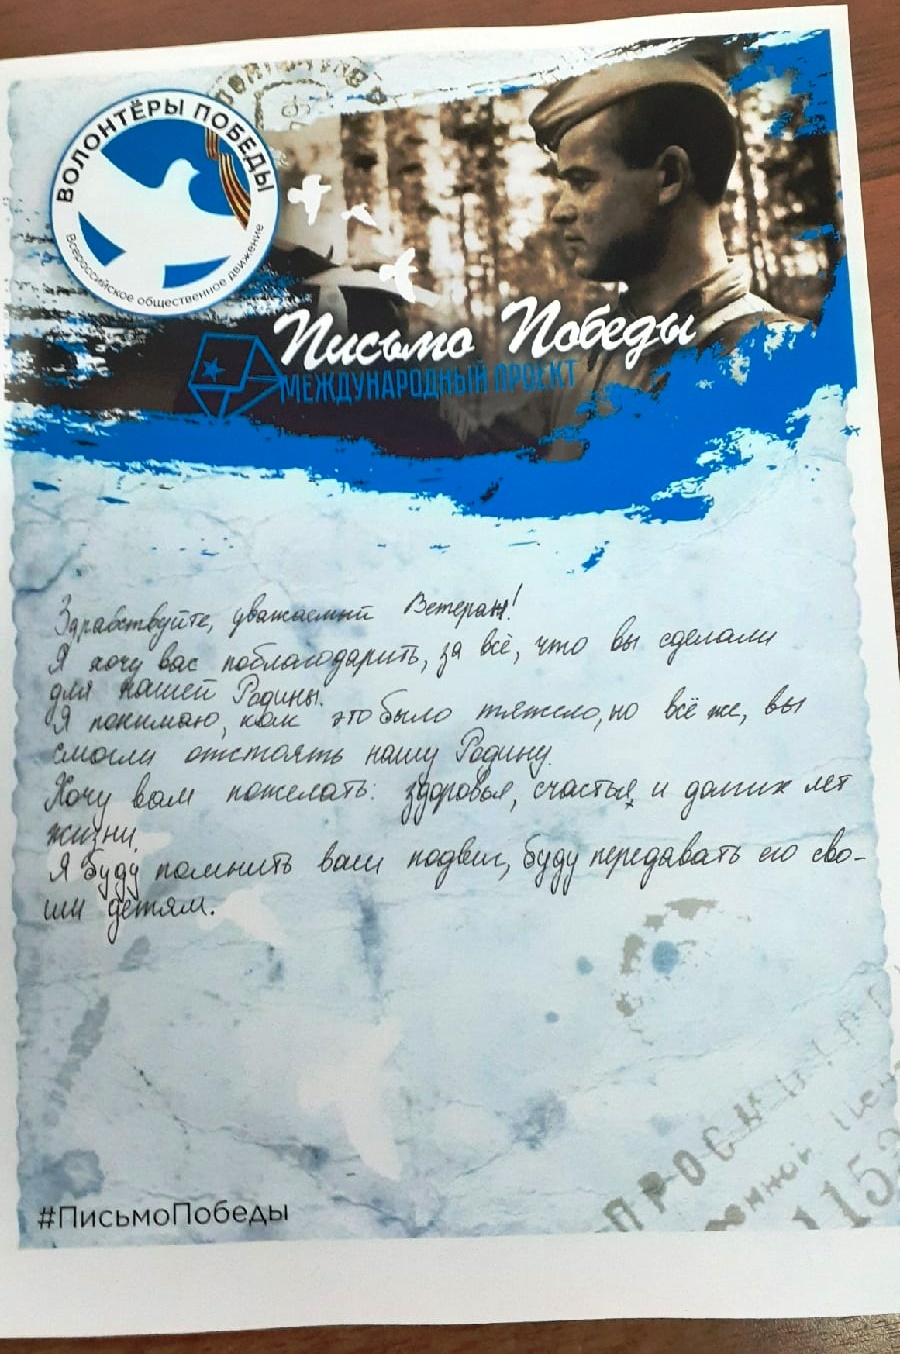 ВОЛОНТЁРЫ ПОБЕДЫ
Всероссийское общественное движение
Письмо Победы
МЕЖДУНАРОДНЫЙ ПРОЕКТ
Здравствуйте, уважаемый Ветеран!
Я хочу вас поблагодарить, за всё, что вы сделали
для нашей Родины.
Я понимаю, как это было тяжело, но всё же, вы
смогли отстоять нашу Родину.
Хочу вам пожелать: здоровья, счастья, и долгих лет
жизни.
Я буду помнить ваш подвиг, буду передавать его сво-
им детям.
#ПисьмоПобеды
1152